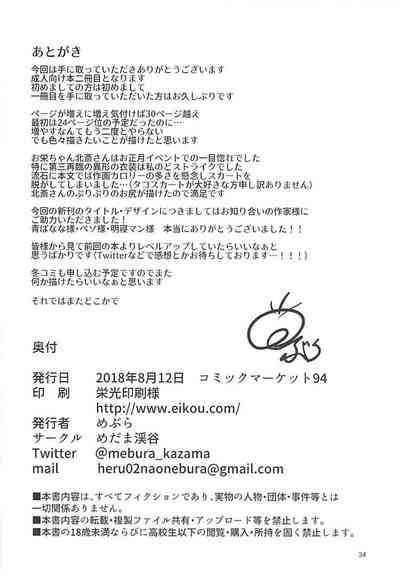 あとがき
今回は手に取っていただきありがとうございます
成人向け本二冊目となります
初めましての方は初めまして
一冊目を手に取っていただいた方はお久しぶりです
ページが増えに増え気付けば30ページ越え
最初は24ページ位の予定だったのに…
増やすなんてもう二度とやらない
でも色々描きたいことが描けたと思います
お栄ちゃん北斎さんはお正月イベントでの一目惚れでした
特に第三再臨の異形の衣装は私のどストライクでした
流石に本文では作画カロリーの多さを懸念しスカートを
脱がしてしまいました…(タコスカートが大好きな方申し訳ありません)
北斎さんのぷりぷりのお尻が描けたので満足です
今回の新刊のタイトル・デザインにつきましてはお知り合いの作家様に
ご助力いただきました!
青ばなな様・ペソ様・明寝マン様 本当にありがとうございます!!
皆様から見て前回の本よりレベルアップしていたらいいなぁと
思うばかりです(Twitterなどで感想とかお待ちしております…!!!)
冬コミも申し込む予定ですのでまた
何か描けたらいいなぁと思います
それではまたどこかで
めぶら
奥付
発行日 2018年8月12日 コミックマーケット94
印 刷 栄光印刷様
http://www.eikou.com/
発行者 めぶら
サークル めだま渓谷
Twitter @mebura_kazama
mail heru02naonebura@gmail.com
■本書内容は、すべてフィクションであり、実物の人物・団体・事件等とは
一切関係ありません。
■本書内容の転載・複製ファイル共有・アップロード等を禁止します。
■本書の18歳未満ならびに高校生以下の閲覧・購入・所持を固く禁止します。
34